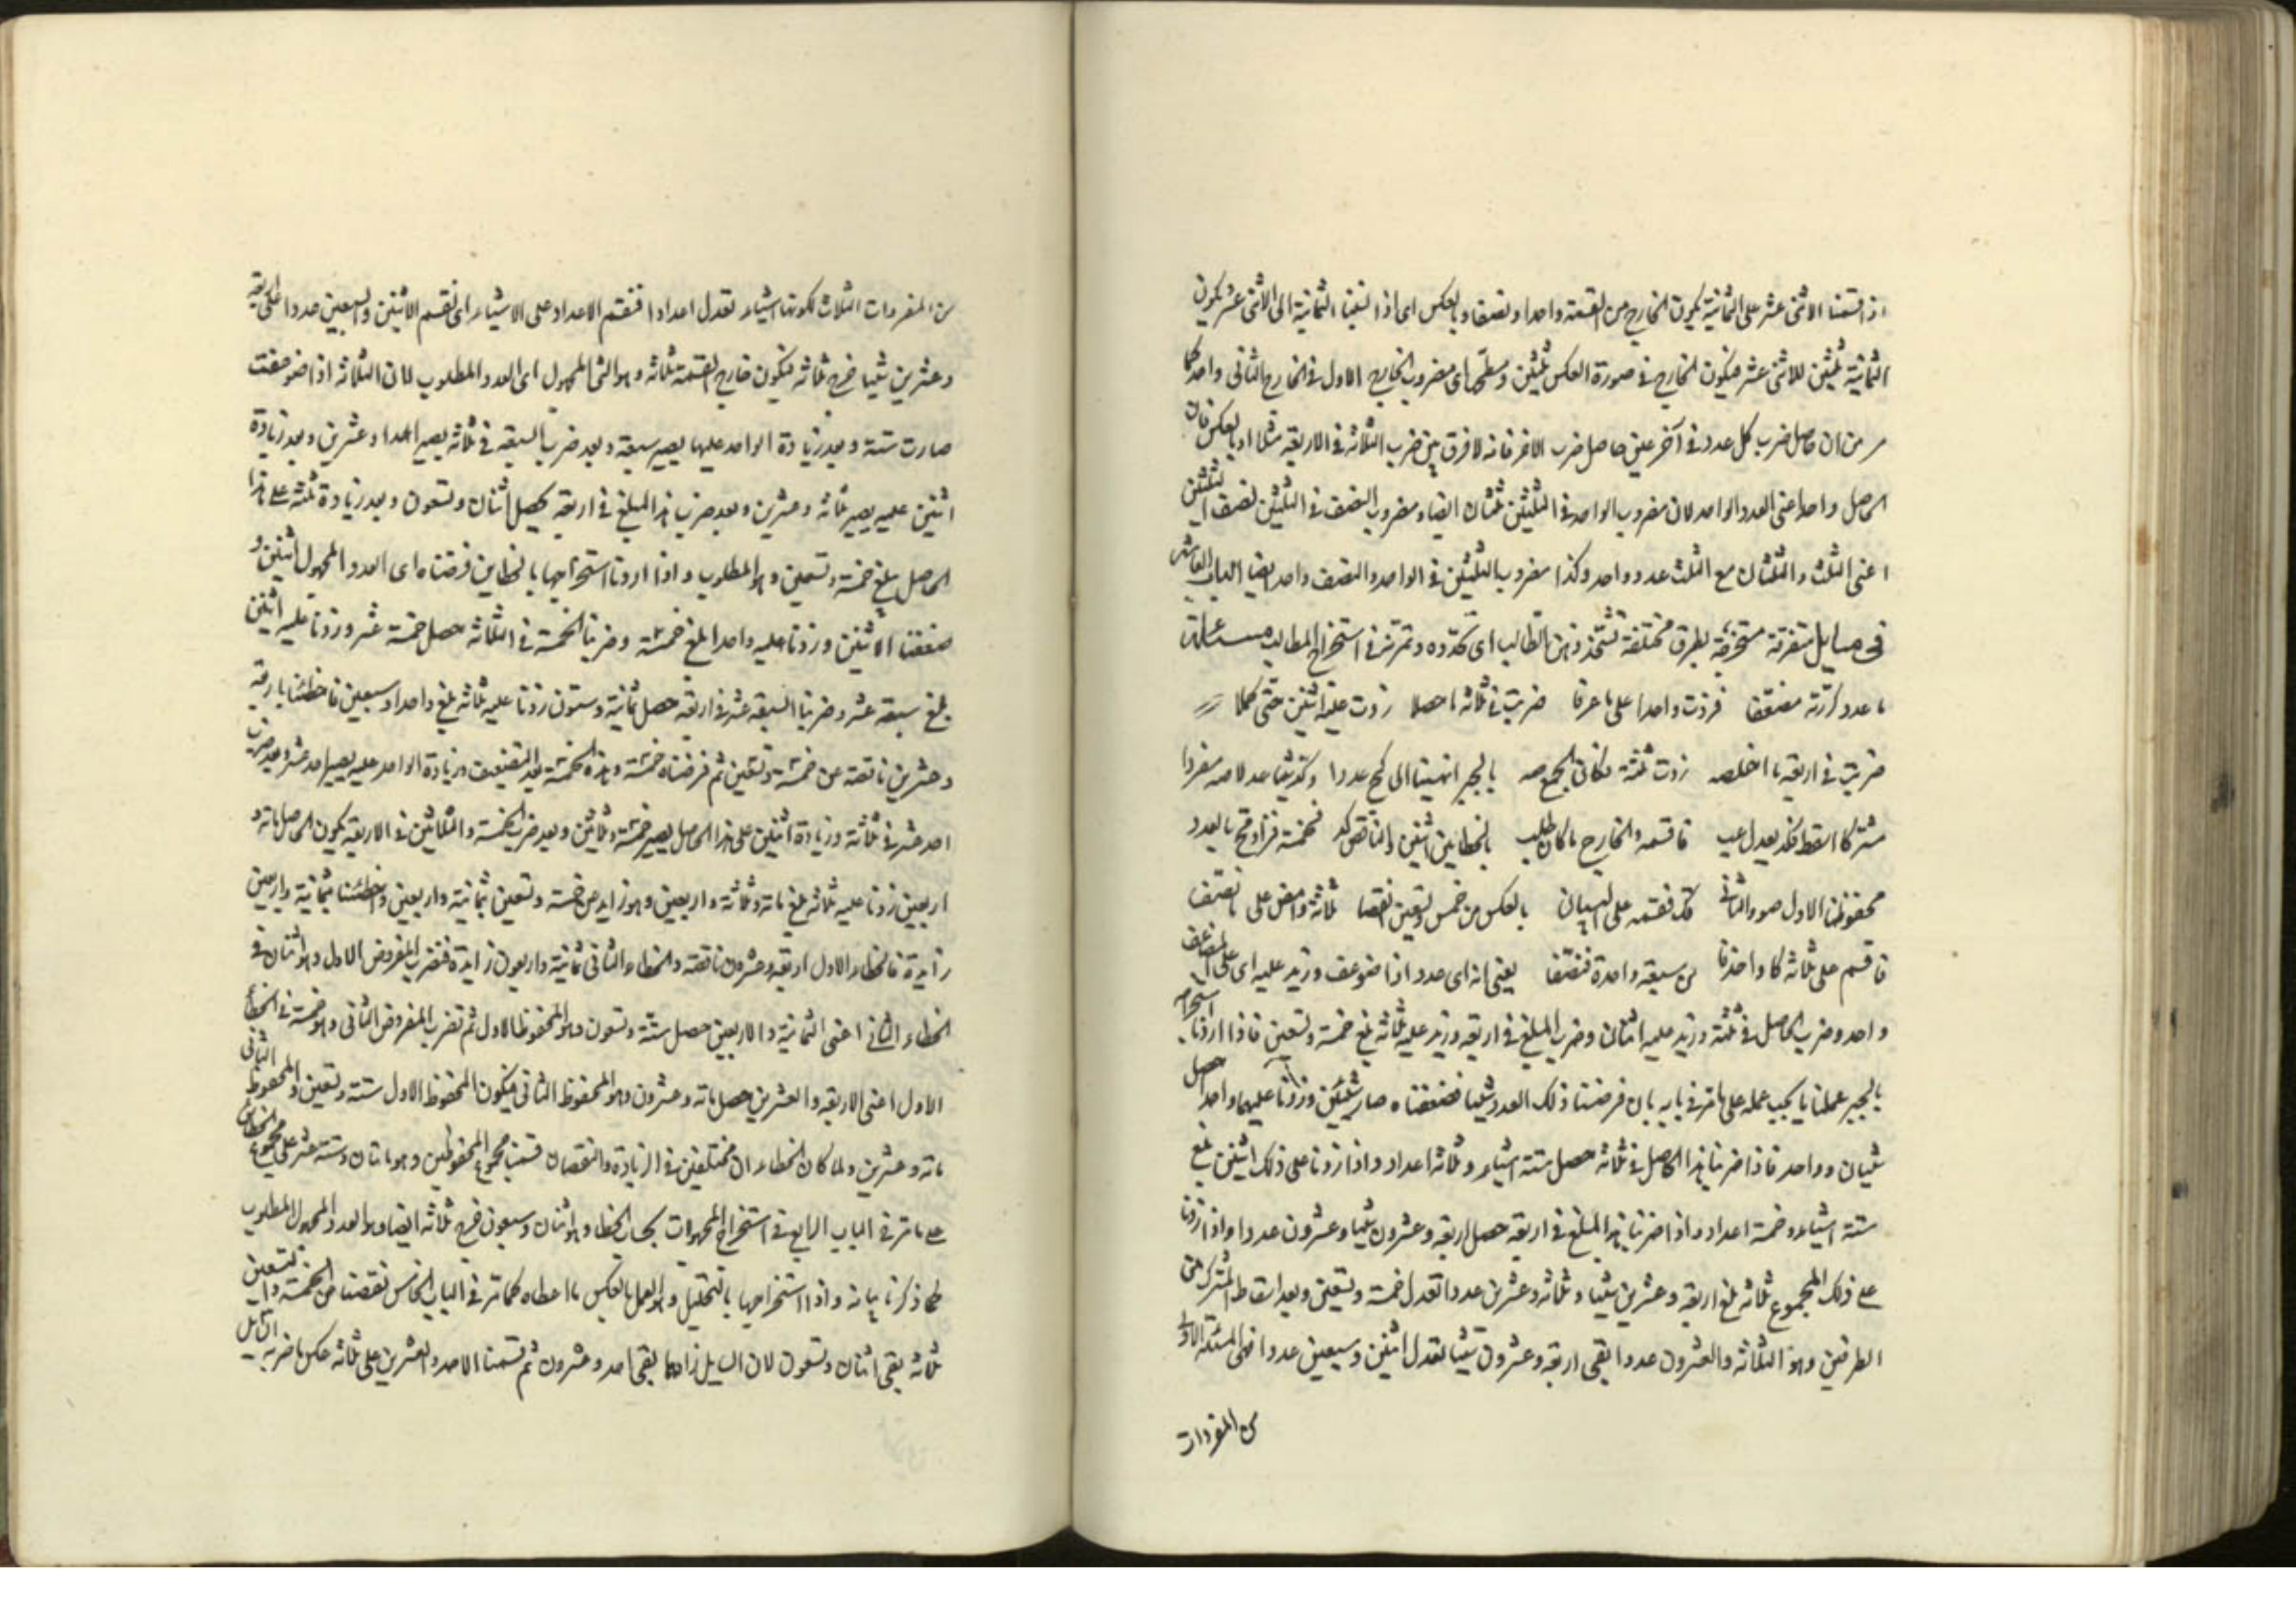 اذا قسمنا الاثنى عشر على الثمانية يكون الخارج من القسمة واحدا ونصفا وبالعكس اى اذا نسبنا الثمانية الى الاثنى عشر يكون
الثمانية ثلثين للاثنى عشر فيكون الخارج فى صورة العكس ثلثين ومسطحهما اى مضروب الخارج الاول فى الخارج الثانى واحد كما
مر من ان حاصل ضرب كل عدد فى آخر عين حاصل ضرب الاخر فانه لا فرق بين ضرب الثلاثة فى الاربعة مثلا او بالعكس فان
الحاصل واحد اعنى العدد الواحد لان مضروب الواحد فى الثلثين ثلثان ايضا ومضروب النصف فى الثلثين نصف الثلثين
اعنى الثلث والثلثان مع الثلث عدد واحد وكذا مضروب الثلثين فى الواحد والنصف واحد ايضا الباب العاشر
فى مسايل متفرقة مستخرجة بطرق مختلفة تشحذ ذهن الطالب اى تحدده وتمرنه فى استخراج المطالب مسئلة
ما عدد كررته مضعفا فزدت واحدا على ما عرفا ضربت فى ثلاثة ما حصلا زدت عليه اثنين حتى كملا
ضربت فى اربعة ما زدت ثلثة فكان بالجبر انتهينا الى عددا
مشتركا اسقط فاقسمه والخارج ما كان طلب بالخطاين اثنين والناقص كد فخمسة فزاد بالعدد
محفوظنا الاول صو والثانى قك فقسمه على بالعكس من خمس وتسعين انقصا ثلاثة وامض على
فاقسم على ثلاثة كا واحذفا من سبعة واحدة فنصفا يعنى انه اى عدد اذا ضوعف وزيد عليه اى على المضاعف
واحد وضرب الحاصل فى ثلثة وزيد عليه اثنان وضرب المبلغ فى اربعة وزيد عليه ثلاثة بلغ خمسة وتسعين فاذا اردنا استخراجه
بالجبر عملنا ما يجب عمله على ما مر فى بابه بان فرضنا ذلك العدد شيئا فضعفناه صار شيئين وزدنا عليهما واحدا حصل
شيئان وواحد فاذا ضربنا هذا الحاصل فى ثلاثة حصل ستة اشياء وثلاثة اعداد واذا زدنا على ذلك اثنين بلغ
ستة اشياء وخمسة اعداد واذا ضربنا هذا المبلغ فى اربعة حصل اربعة وعشرون شيئا وعشرون عددا واذا زدنا
على ذلك المجموع ثلاثة بلغ اربعة وعشرين شيئا وثلاثة وعشرين عددا تعدل خمسة وتسعين وبعد اسقاط المشترك من
الطرفين وهو الثلاثة والعشرون عددا بقى اربعة وعشرون شيئا تعدل اثنين وسبعين عددا فهى المسئلة الاولى
من المفردات
من المفردات الثلاث لكونها اشياء تعدل اعدادا فنقسم الاعداد على الاشياء اى نقسم الاثنين والسبعين عددا على اربعة
وعشرين شيئا خرج ثلاثة فيكون خارج القسمة ثلاثة وهو الشئ المجهول اى العدد المطلوب لان الثلاثة اذا ضوعفت
صارت ستة وبعد زيادة الواحد عليها يصير سبعة وبعد ضرب السبعة فى ثلاثة يصير احدا وعشرين وبعد زيادة
اثنين عليه يصير ثلاثة وعشرين وبعد ضرب هذا المبلغ فى اربعة يحصل اثنان وتسعون وبعد زيادة ثلثة على هذا
الحاصل يبلغ خمسة وتسعين وهو المطلوب واذا اردنا استخراجها بالخطاين فرضناه اى العدد المجهول اثنين و
ضعفنا الاثنين وزدنا عليه واحدا بلغ خمسة وضربنا الخمسة فى الثلاثة حصل خمسة عشر وزدنا عليه اثنين
بلغ سبعة عشر وضربنا السبعة عشر فى اربعة حصل ثمانية وستون زدنا عليه ثلاثة بلغ واحدا وسبعين فاخطانا باربعة
وعشرين ناقصة عن خمسة وتسعين ثم فرضناه خمسة وهذه الخمسة بعد التضعيف وزيادة الواحد عليه يصير احد عشر وبعد ضرب
احد عشر فى ثلاثة وزيادة اثنين على هذا الحاصل يصير خمسة وثلاثين وبعد ضرب الخمسة والثلاثين فى الاربعة يكون الحاصل مائة و
اربعين زدنا عليه ثلاثة بلغ مائة وثلاثة واربعين وهو زايد عن خمسة وتسعين بثمانية واربعين واخطانا بثمانية واربعين
زايدة فالخطاء الاول اربعة وعشرون ناقصة والخطاء الثانى ثمانية واربعون زايدة فنضرب المفروض الاول وهو اثنان فى
الخطاء الثانى اعنى الثمانية والاربعين حصل ستة وتسعون وهو المحفوظ الاول ثم نضرب المفروض الثانى وهو خمسة فى الخطاء
الاول اعنى الاربعة والعشرين حصل مائة وعشرون وهو المحفوظ الثانى فيكون المحفوظ الاول ستة وتسعين والمحفوظ الثانى
مائة وعشرين ولما كان الخطاءان مختلفين فى الزيادة والنقصان قسمنا مجموع المحفوظين وهو مائتان وستة عشر على مجموع الخطاين
على ما مر فى الباب الرابع فى استخراج المجهولات بحساب الخطاء وهو اثنان وسبعون خرج ثلاثة ايضا وهو العدد المجهول المطلوب
كما ذكرنا بيانه واذا استخراجها بالتحليل وهو العمل بالعكس ما اعطاه كما مر فى الباب الخامس نقصنا من الخمسة والتسعين
ثلاثة بقى اثنان وتسعون لان السايل زادها بقى احد وعشرون ثم قسمنا الاحد والعشرين على ثلاثة عكس ما ضربه السايل